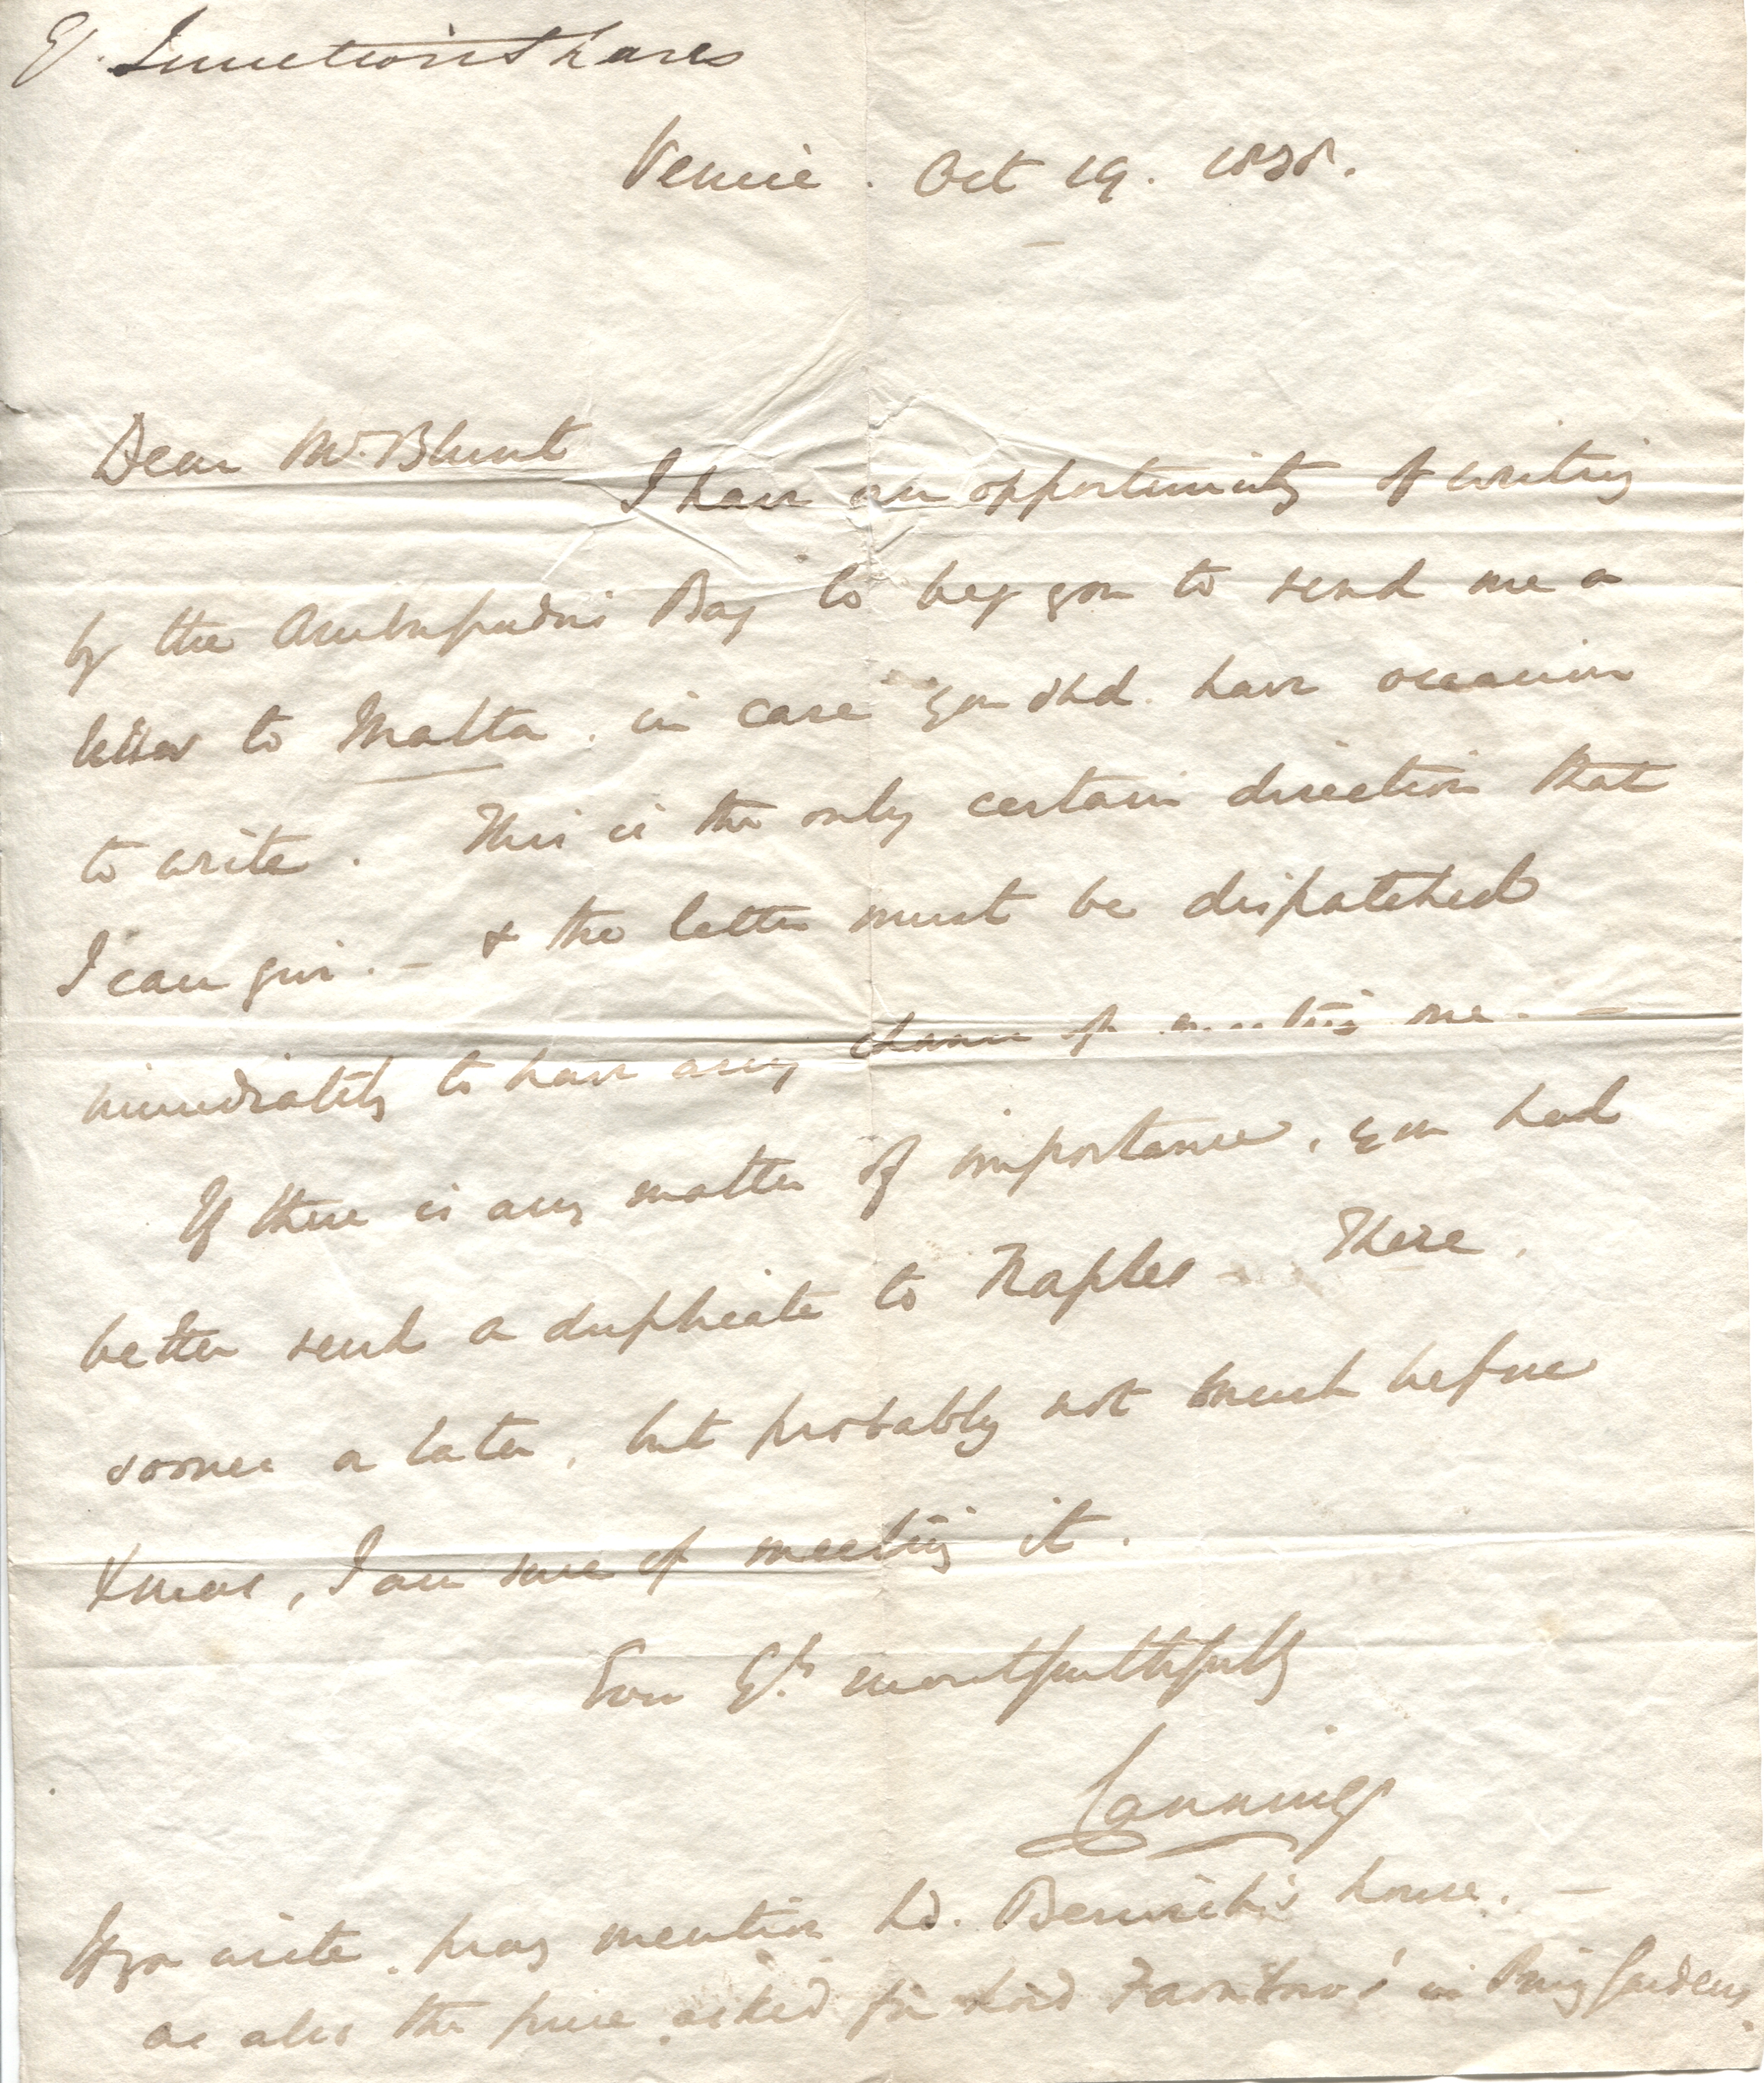 Junction Shares
Venice. Oct 19. 1838.
Dear Mr. Blunt
I have an opportunity of writing
by the Ambassador's Bag to beg you to send me a
letter to Malta. in case you shd. have occasion
to write. This is the only certain direction that
I can give. — & the letter must be dispatched
immediately to have any chance of meeting me. —
If there is any matter of importance, you had
better send a duplicate to Naples — There,
sooner or later, but probably not much before
Xmas, I am sure of meeting it.
most faithfully
Canning
If you write, pray mention Ld. Berwick's house. —
as also the price asked for Lord Farnboro's in Gardens.